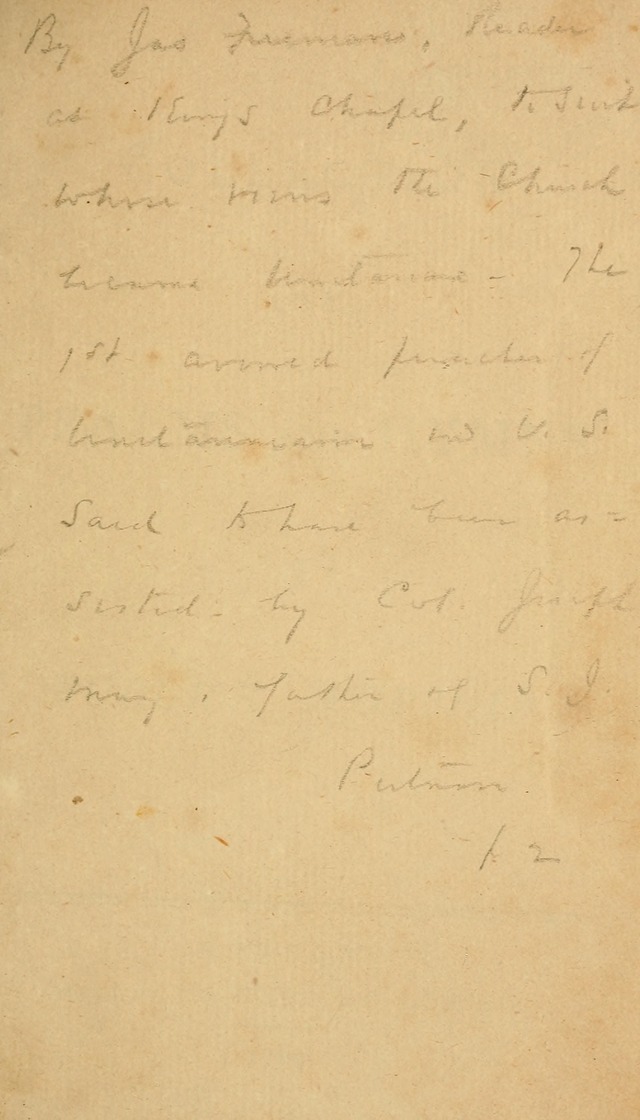 By Jas Freeman, Reader
at King's Chapel, to suit
whose views the Church
became Unitarian - The
1st avowed preacher of
Unitarianism in U. S.
Said to have been as=
sisted by Col. Joseph
May, father of S. J.
Putnam
p. 2